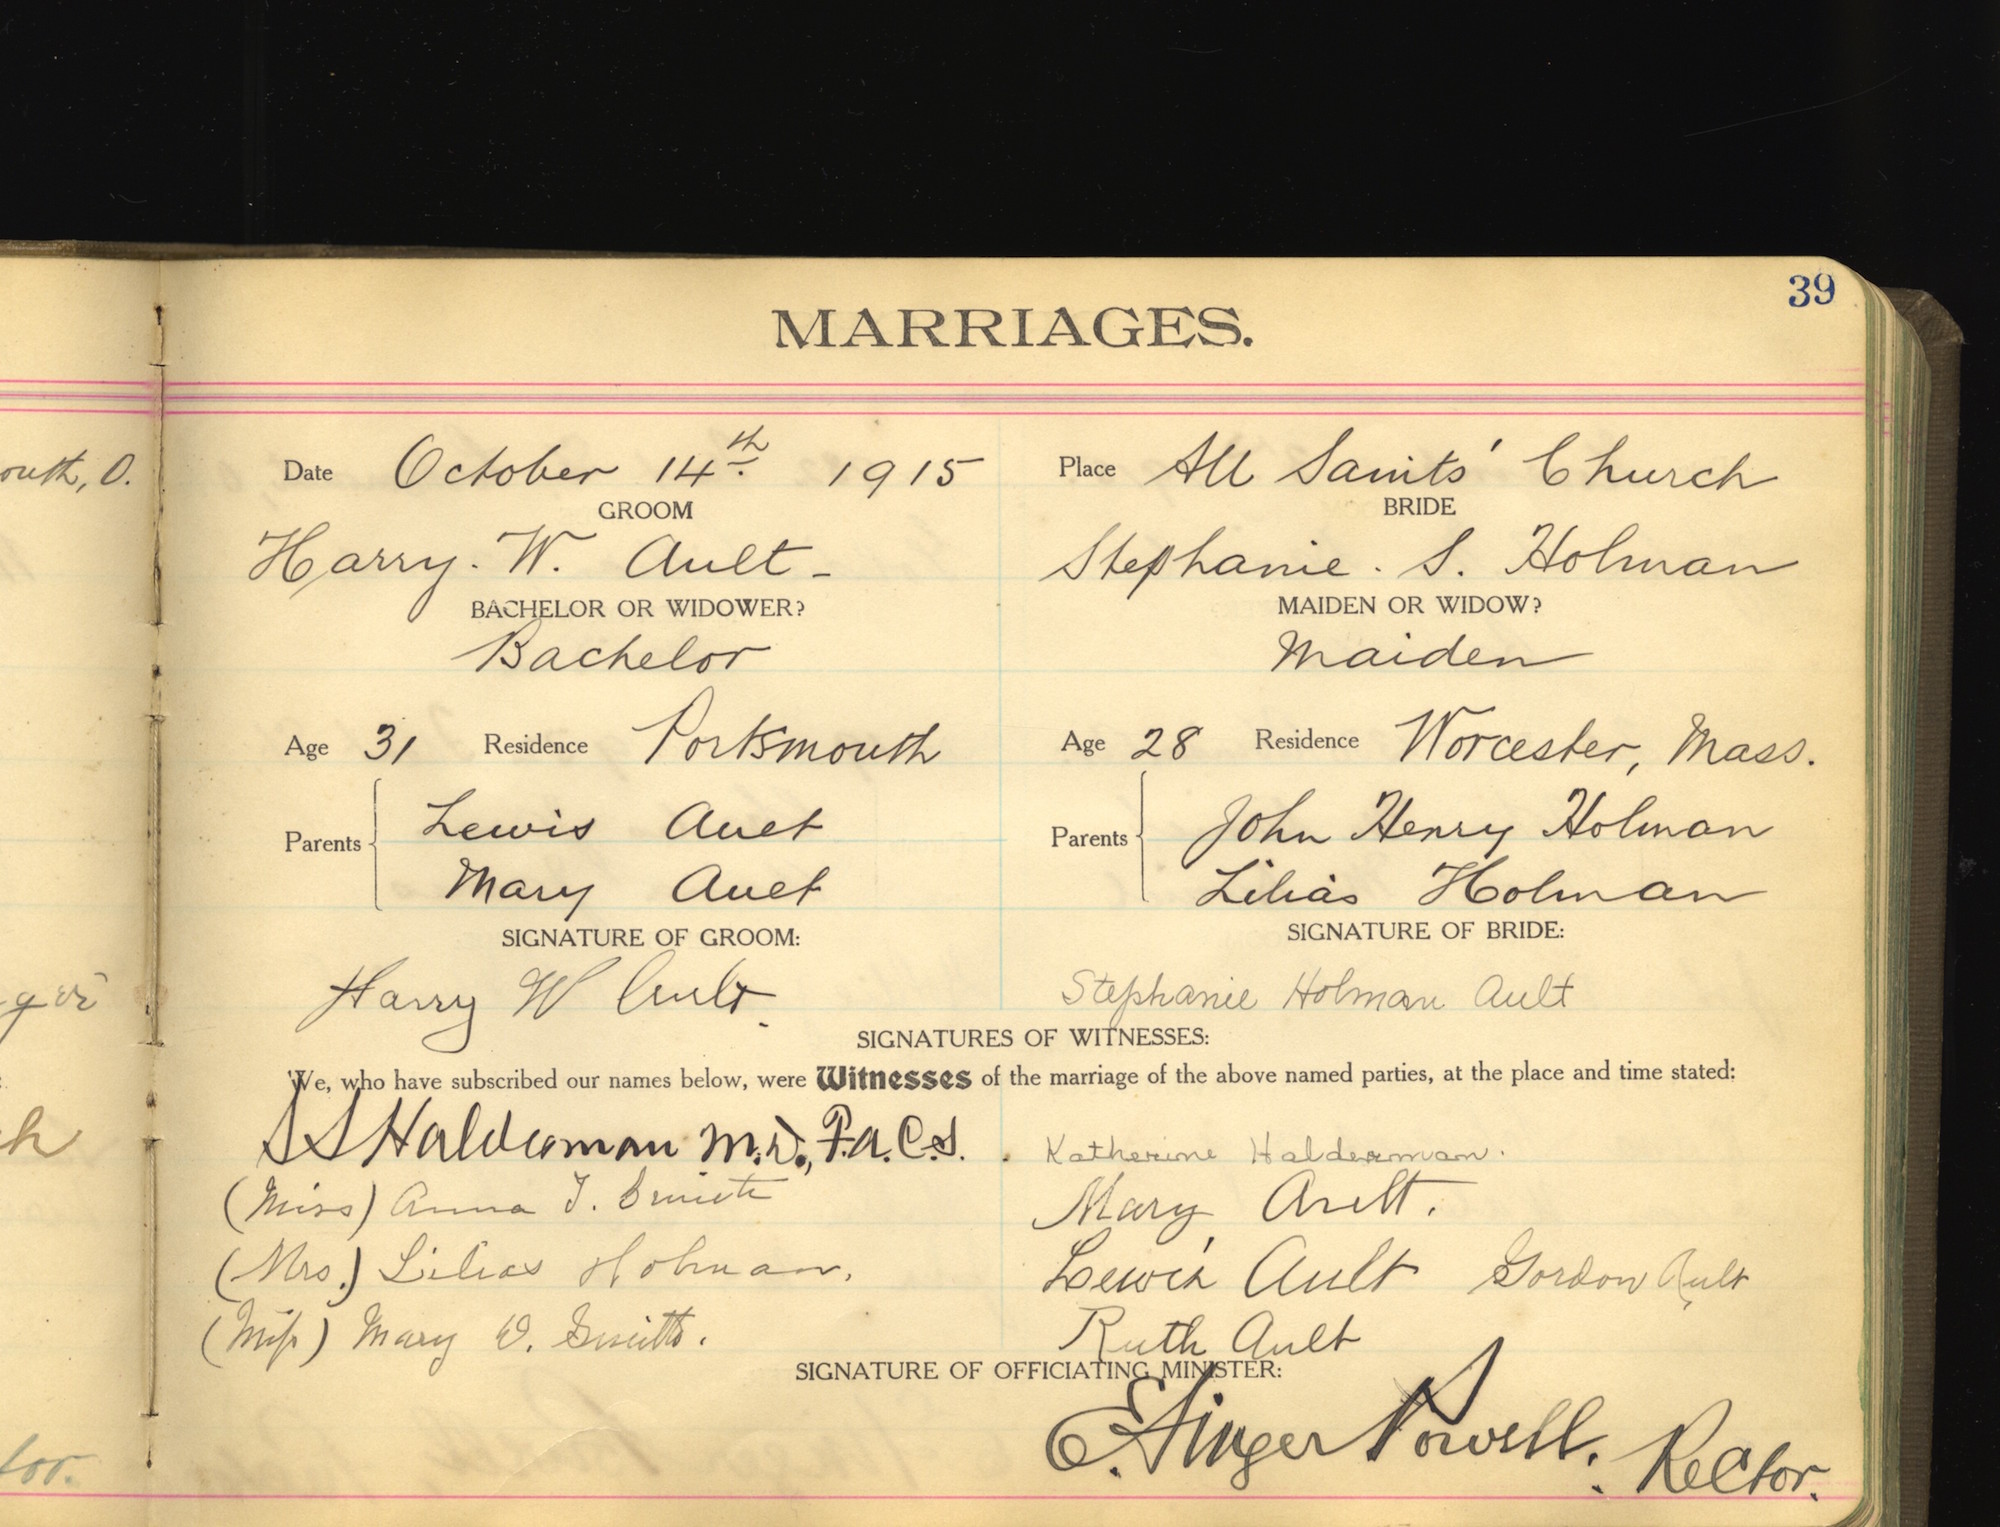 39
MARRIAGES.
outh, O.
Date October 14th 1915 Place All Saints' Church
GROOM BRIDE
Harry. W. Ault - Stephanie. S. Holman
BACHELOR OR WIDOWER? MAIDEN OR WIDOW?
Bachelor Maiden
Age 31 Residence Portsmouth Age 28 Residence Worcester, Mass.
Parents Lewis Ault Parents John Henry Holman
Mary Ault Lilias Holman
SIGNATURE OF GROOM: SIGNATURE OF BRIDE:
Harry W Ault. Stephanie Holman Ault
SIGNATURES OF WITNESSES:
We, who have subscribed our names below, were Witnesses of the marriage of the above named parties, at the place and time stated:
S S Halderman M.D., F.A.C.S. Katherine Halderman.
(Miss) Anna T. Mary Ault.
(Mrs.) Lilias Holman. Lewis Ault Gordon Ault
(Miss) Mary Smith. Ruth Ault
SIGNATURE OF OFFICIATING MINISTER:
E. Ainger Powell. Rector.
tor.